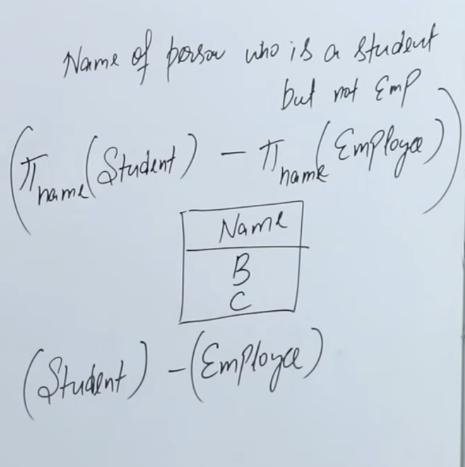 Name of person who is a student
but not Emp
(π name (Student) − π name (Employee))
Name
B
C
(Student) − (Employee)